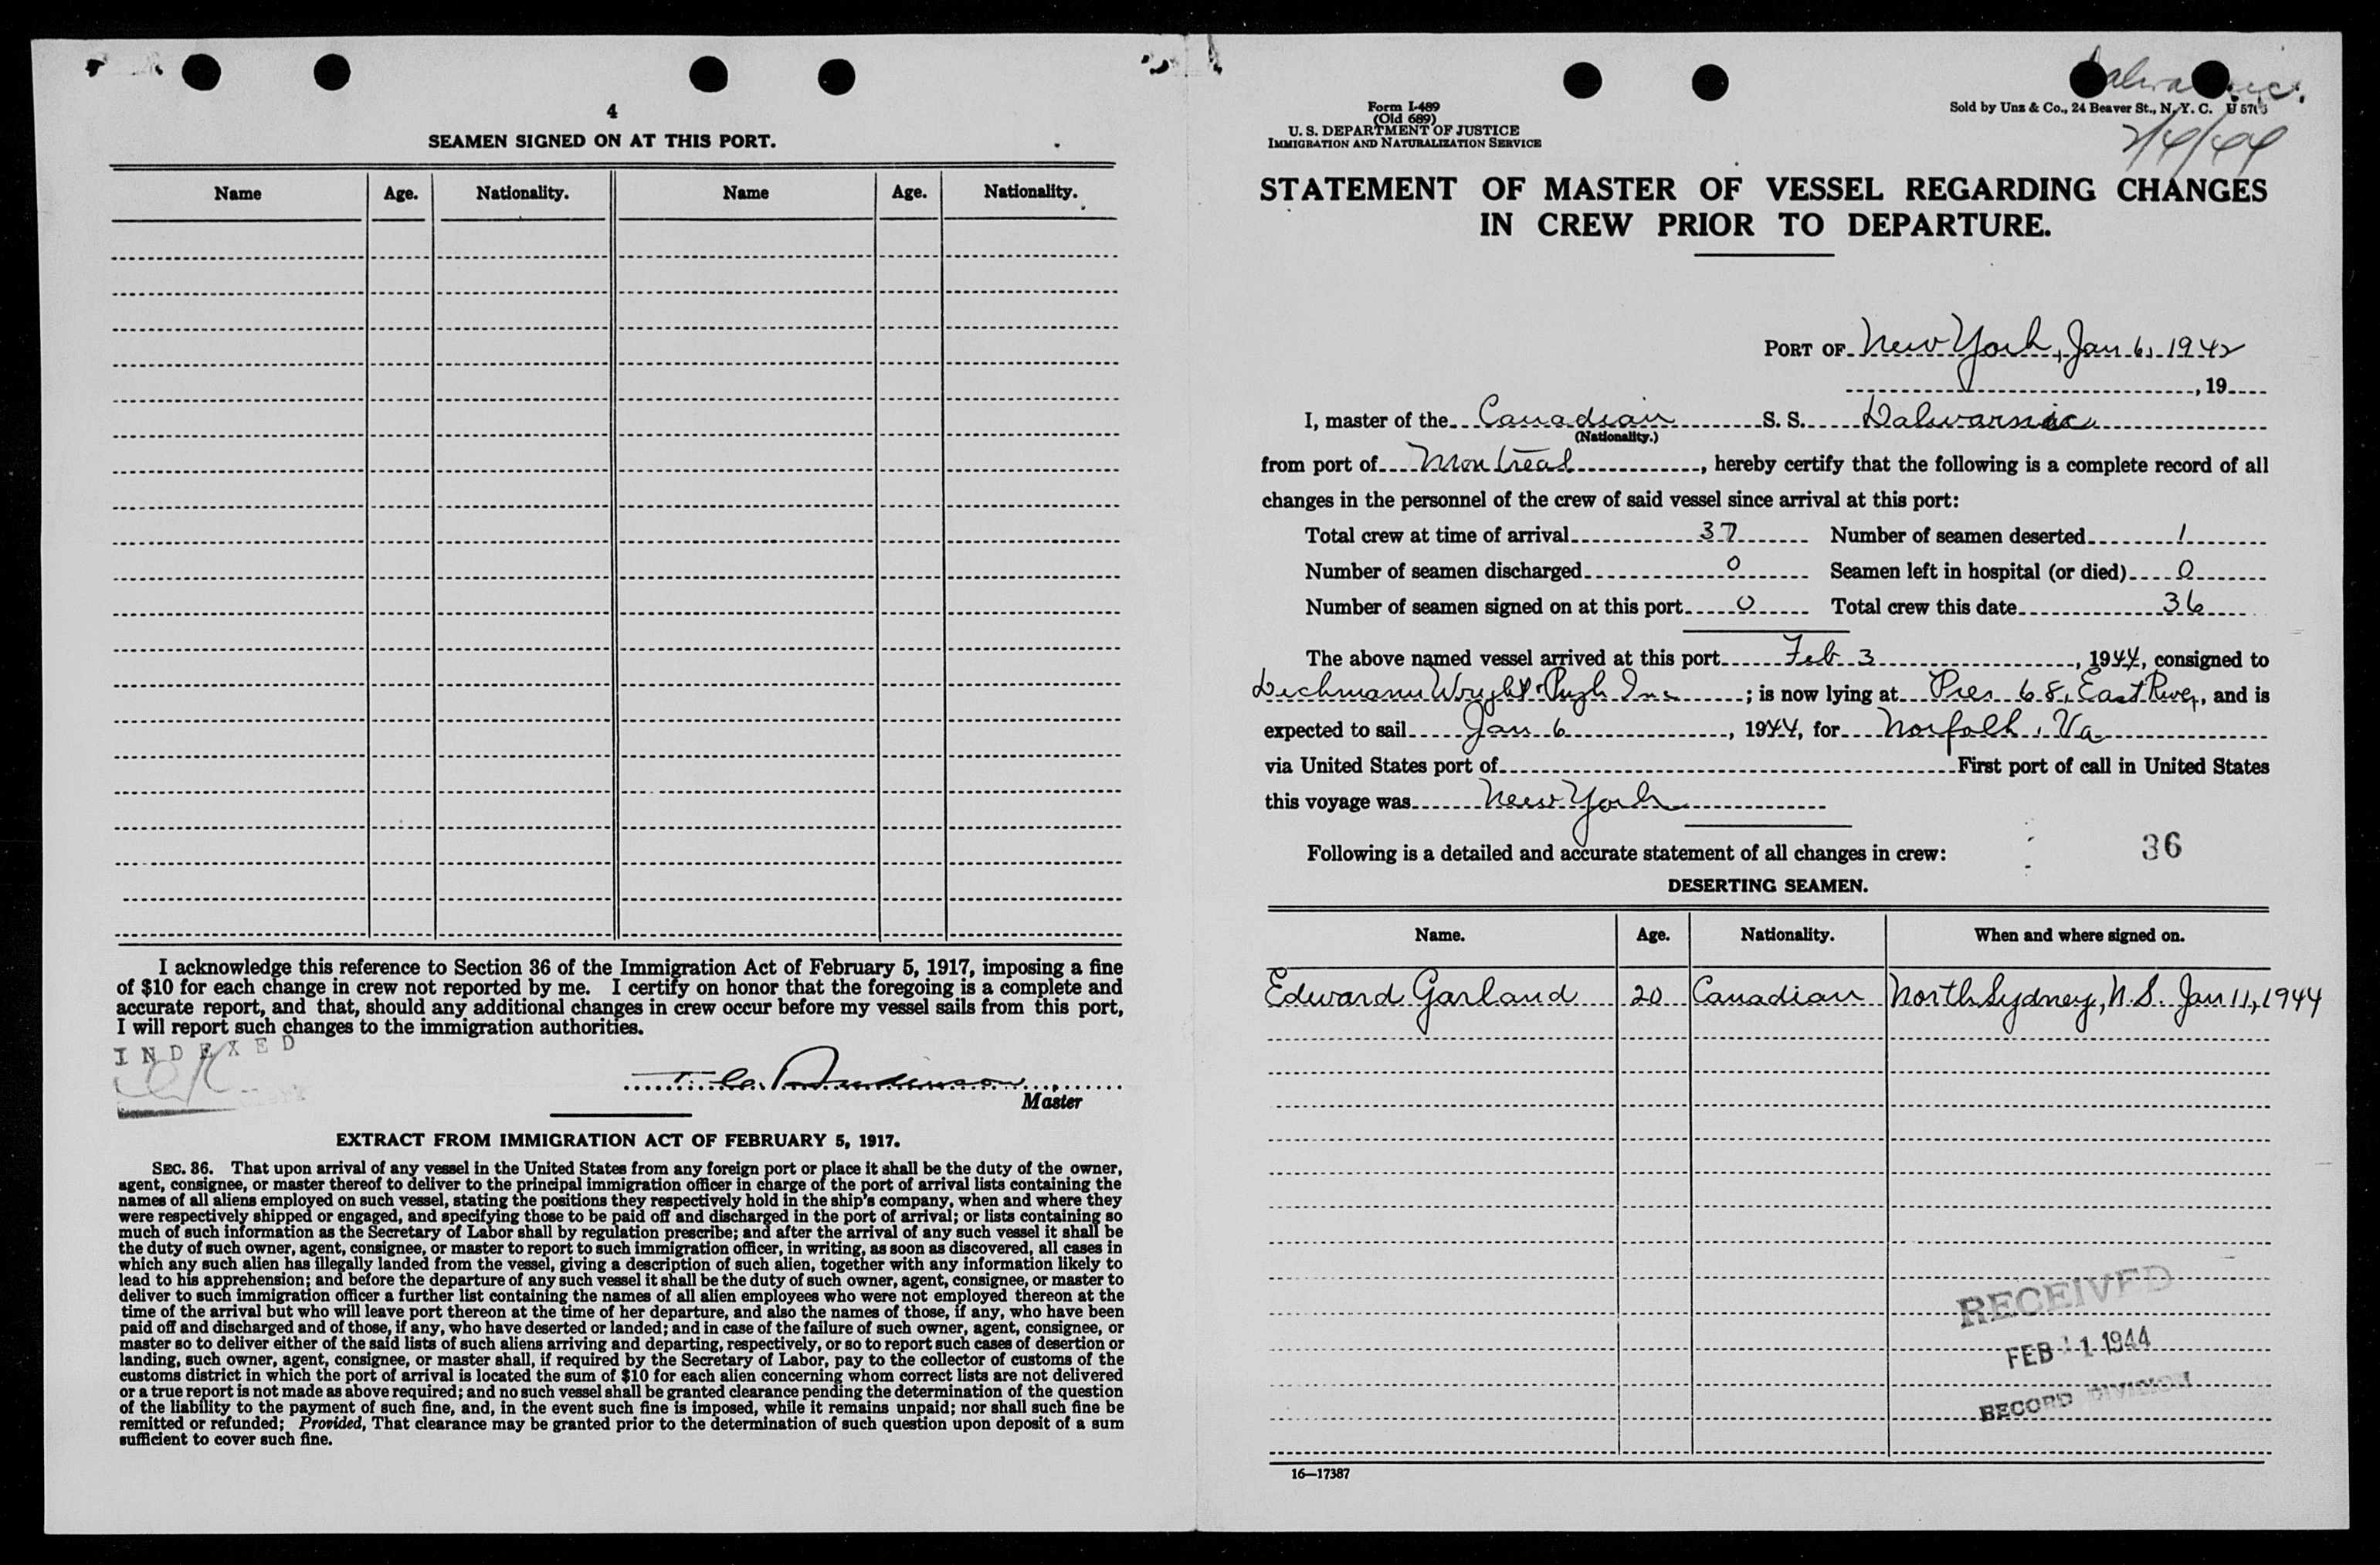 4
SEAMEN SIGNED ON AT THIS PORT.
Name Age. Nationality. Name Age. Nationality.
I acknowledge this reference to Section 36 of the Immigration Act of February 5, 1917, imposing a fine
of $10 for each change in crew not reported by me. I certify on honor that the foregoing is a complete and
accurate report, and that, should any additional changes in crew occur before my vessel sails from this port,
I will report such changes to the immigration authorities.
INDEXED
Anderson
Master
EXTRACT FROM IMMIGRATION ACT OF FEBRUARY 5, 1917.
SEC. 36. That upon arrival of any vessel in the United States from any foreign port or place it shall be the duty of the owner,
agent, consignee, or master thereof to deliver to the principal immigration officer in charge of the port of arrival lists containing the
names of all aliens employed on such vessel, stating the positions they respectively hold in the ship's company, when and where they
were respectively shipped or engaged, and specifying those to be paid off and discharged in the port of arrival; or lists containing so
much of such information as the Secretary of Labor shall by regulation prescribe; and after the arrival of any such vessel it shall be
the duty of such owner, agent, consignee, or master to report to such immigration officer, in writing, as soon as discovered, all cases in
which any such alien has illegally landed from the vessel, giving a description of such alien, together with any information likely to
lead to his apprehension; and before the departure of any such vessel it shall be the duty of such owner, agent, consignee, or master to
deliver to such immigration officer a further list containing the names of all alien employees who were not employed thereon at the
time of the arrival but who will leave port thereon at the time of her departure, and also the names of those, if any, who have been
paid off and discharged and of those, if any, who have deserted or landed; and in case of the failure of such owner, agent, consignee, or
master so to deliver either of the said lists of such aliens arriving and departing, respectively, or so to report such cases of desertion or
landing, such owner, agent, consignee, or master shall, if required by the Secretary of Labor, pay to the collector of customs of the
customs district in which the port of arrival is located the sum of $10 for each alien concerning whom correct lists are not delivered
or a true report is not made as above required; and no such vessel shall be granted clearance pending the determination of the question
of the liability to the payment of such fine, and, in the event such fine is imposed, while it remains unpaid; nor shall such fine be
remitted or refunded; Provided, That clearance may be granted prior to the determination of such question upon deposit of a sum
sufficient to cover such fine.
Form I-489
(Old 689)
U. S. DEPARTMENT OF JUSTICE
IMMIGRATION AND NATURALIZATION SERVICE
Sold by Unz & Co., 24 Beaver St., N. Y. C.
2/4/44
STATEMENT OF MASTER OF VESSEL REGARDING CHANGES
IN CREW PRIOR TO DEPARTURE.
PORT OF New York, Jan 6, 1942
, 19
I, master of the Canadian S. S. Dalwarnic
(Nationality.)
from port of Montreal, hereby certify that the following is a complete record of all
changes in the personnel of the crew of said vessel since arrival at this port:
Total crew at time of arrival 37 Number of seamen deserted 1
Number of seamen discharged 0 Seamen left in hospital (or died) 0
Number of seamen signed on at this port 0 Total crew this date 36
The above named vessel arrived at this port Feb 3, 1944, consigned to
Dichmann Wright & Pugh Inc; is now lying at Pier 68, East River, and is
expected to sail Jan 6, 1944, for Norfolk, Va
via United States port of First port of call in United States
this voyage was New York
Following is a detailed and accurate statement of all changes in crew: 36
DESERTING SEAMEN.
Name. Age. Nationality. When and where signed on.
Edward Garland 20 Canadian North Sydney, N.S. Jan 11, 1944
RECEIVED
FEB 11 1944
RECORD DIVISION
16—17387